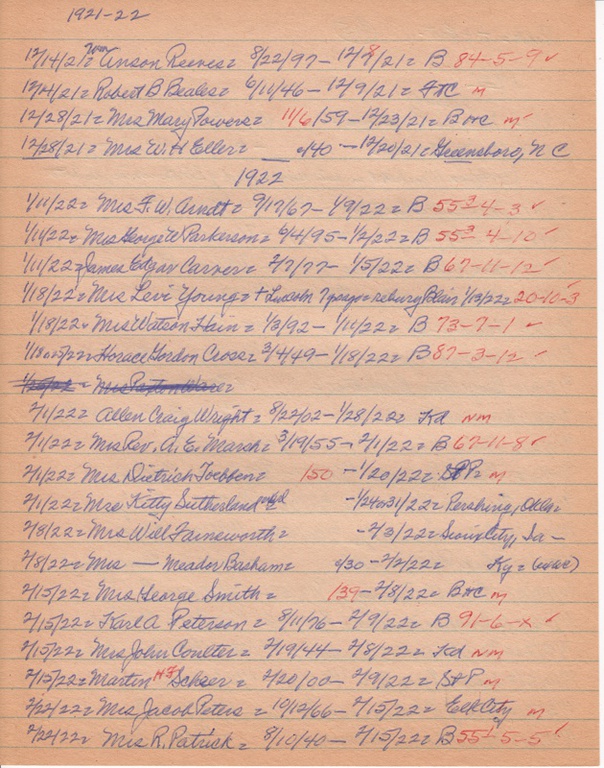 1921-22
12/14/21 = Anson Reeves = 8/22/97 - 12/7/21 = B 84-5-9 ✓
12/14/21 = Robert B Beales = 6/11/46 - 12/9/21 = FtC m
12/28/21 = Mrs Mary Powers = 11/6/59 - 12/23/21 = B+C m
12/28/21 = Mrs W. H Eller = c/40 - 12/20/21 = Greensboro, N C
1922
1/11/22 = Mrs F. W. Arndt = 9/17/67 - 1/9/22 = B 55³-4-3 ✓
1/11/22 = Mrs George W Parkerson = 6/4/95 - 1/2/22 = B 55³ 4-10 ✓
1/11/22 = James Edgar Carver = 2/7/77 - 1/5/22 = B 67-11-12 ✓
1/18/22 = Mrs Levi Young = + Lincoln 7 yrs ago = reburg Blair 1/13/22 = 20-10-3
1/18/22 = Mrs Watson Hain = 1/3/92 - 1/11/22 = B 73-7-1 ✓
1/18 25/22 = Horace Gordon Cross = 3/4/49 - 1/18/22 = B 87-3-12 ✓
1/25/22 = Mrs Paxton Ware =
2/1/22 = Allen Craig Wright = 8/22/02 - 1/28/22 = Kd nm
2/1/22 = Mrs Rev. A. E. March = 3/19/55 - 2/1/22 = B 67-11-8 ✓
2/1/22 = Mrs Dietrich Toebben = 150 - 1/20/22 = StP = m
2/1/22 = Mrs Kitty Sutherland = - 1/24 or 31/22 = Pershing, Okla =
2/8/22 = Mrs Will Farneworth = - 2/3/22 = Sioux City, Ia -
2/8/22 = Mrs — Meador Basham = c/30 - 2/2/22 = Ky =
2/15/22 = Mrs George Smith = 139 - 2/8/22 = B+C m
2/15/22 = Karl A Peterson = 8/11/76 - 2/9/22 = B 91-6-x ✓
2/15/22 = Mrs John Coulter = 2/19/44 - 2/8/22 = Kd nm
2/15/22 = Martin HF Schser = 2/20/00 - 2/9/22 = StP m
2/22/22 = Mrs Jacob Peters = 10/12/66 - 2/15/22 = Elk City m
2/22/22 = Mrs R. Patrick = 8/10/40 - 2/15/22 = B 55¹-5-5 ✓